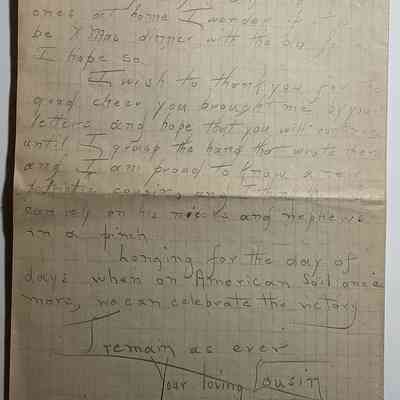 ones at home I wonder if
be X Mas dinner with the
I hope so.
I wish to thank you for
good cheer you brought me by your
letters and hope that you will continue
until I grasp the hand that wrote them
and I am proud to know a
cousin, and
can rely on his nieces and nephews
in a pinch
Longing for the day of
days when on American Soil once
more, we can celebrate the victory
I
remain as ever
Your loving Cousin